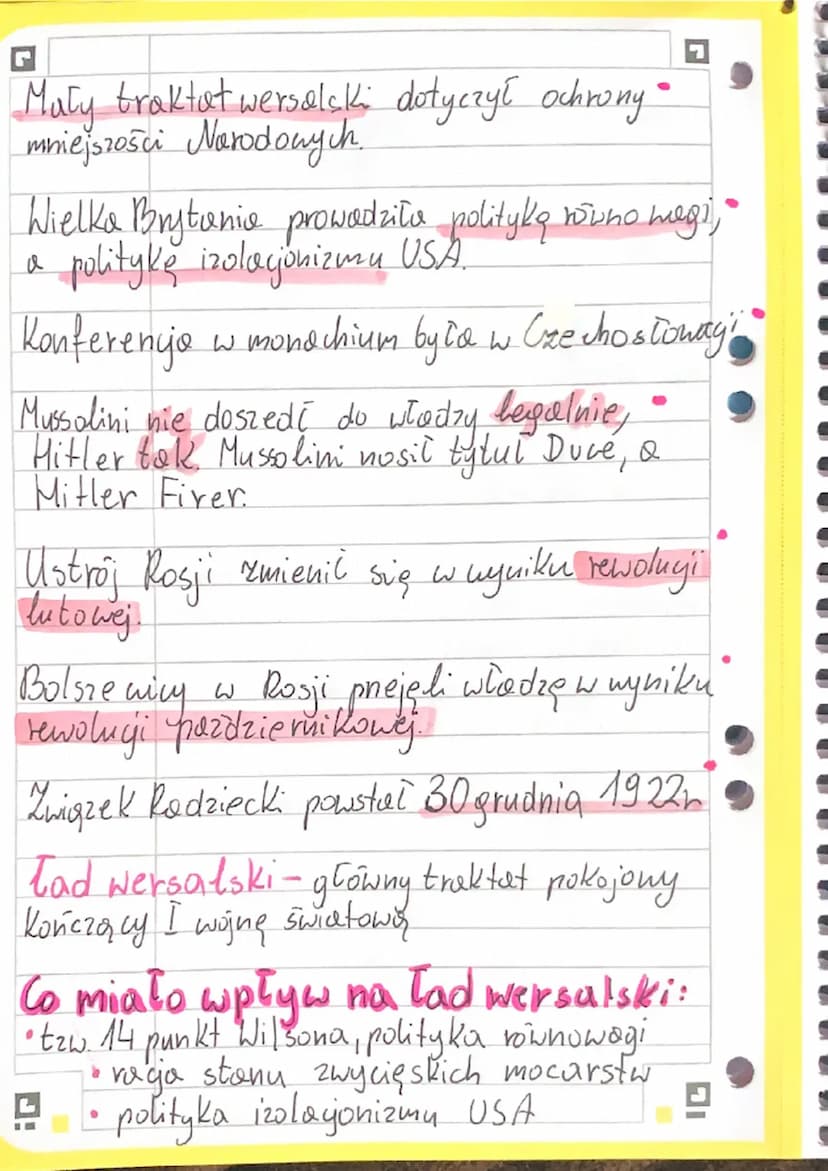 Mały traktat wersalski dotyczył ochrony
mniejszości Narodowych.
Wielka Brytania prowadziła politykę równowagi,
a politykę izolacjonizmu USA.
Konferencja w monachium była w Czechosłowacji
Mussolini nie doszedł do władzy legalnie,
Hitler tak. Mussolini nosił tytuł Duce, a
Hitler Firer.
Ustrój Rosji zmienił się w wyniku rewolucji
lutowej.
Bolszewicy w Rosji przejęli władzę w wyniku
rewolucji październikowej.
Związek Radziecki powstał 30 grudnia 1922r
Ład wersalski - główny traktat pokojowy
kończący I wojnę światową
Co miało wpływ na ład wersalski:
• tzw. 14 punkt Wilsona, polityka równowagi
• racja stanu zwycięskich mocarstw
• polityka izolacjonizmu USA